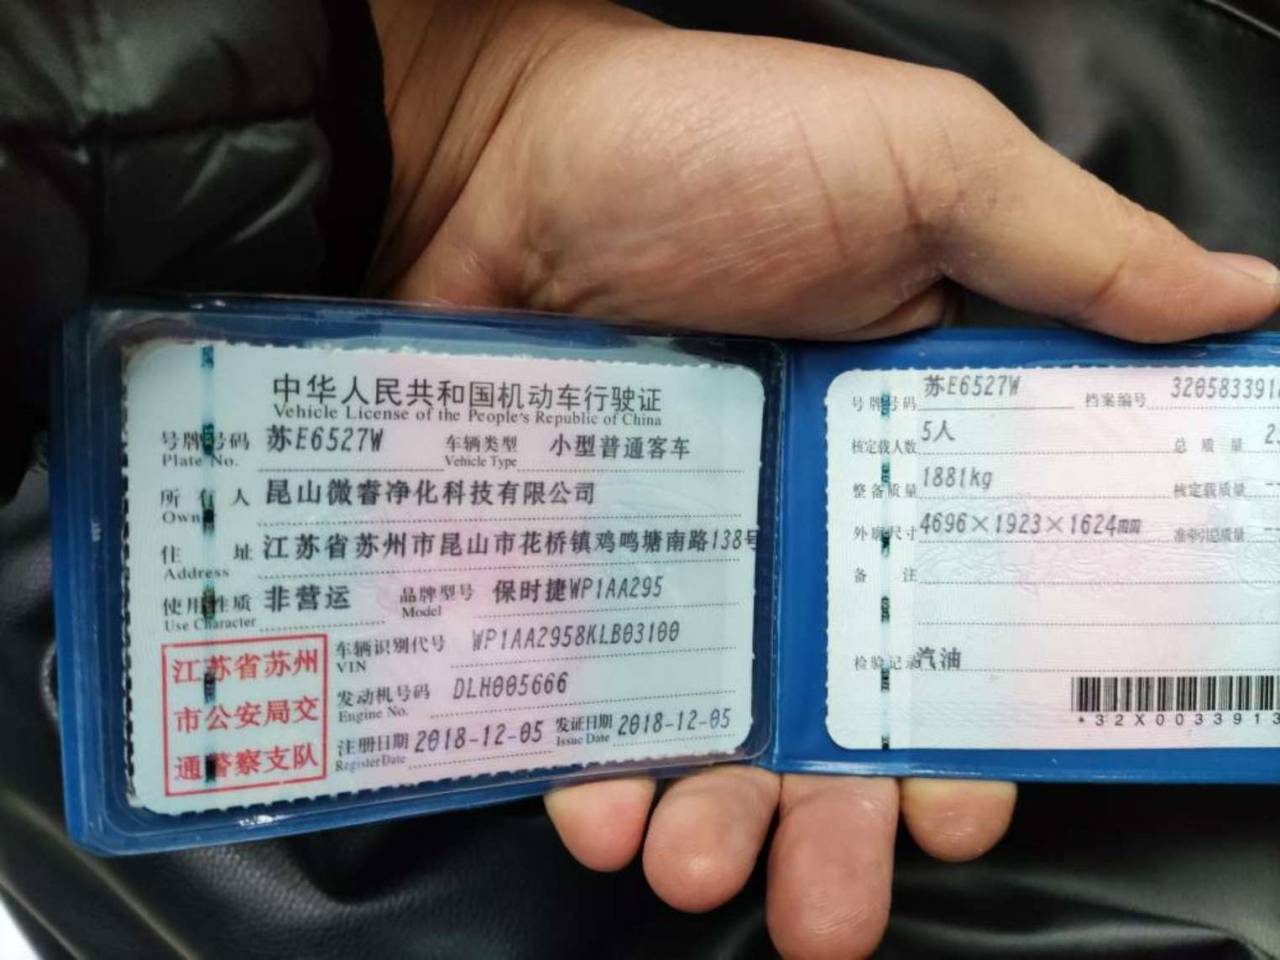 中华人民共和国机动车行驶证
Vehicle License of the People's Republic of China
号牌号码 苏E6527W 车辆类型 小型普通客车
Plate No. Vehicle Type
所有人 昆山微睿净化科技有限公司
Own
住址 江苏省苏州市昆山市花桥镇鸡鸣塘南路138号
Address
使用性质 非营运 品牌型号 保时捷WP1AA295
Use Character Model
江苏省苏州
市公安局交
通警察支队
车辆识别代号 WP1AA2958KLB03100
VIN
发动机号码 DLH005666
Engine No.
注册日期 2018-12-05 发证日期 2018-12-05
Register Date Issue Date
号牌号码 苏E6527W 档案编号 320583391
核定载人数 5人 总质量 2
整备质量 1881kg 核定载质量
外廓尺寸 4696×1923×1624mm 准牵引总质量
备注
检验记录 汽油
*32X0033913